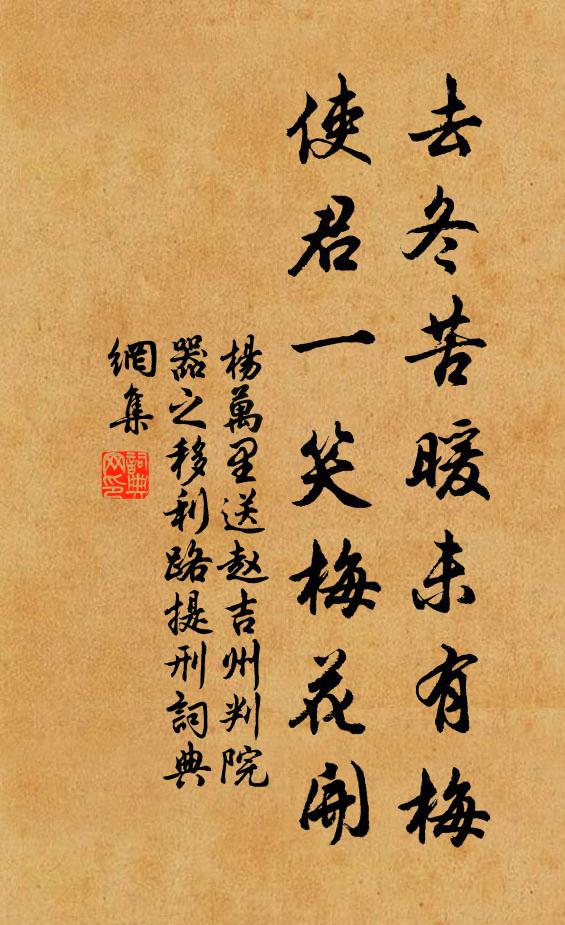 去冬苦暖未有梅
使君一笑梅花開
楊萬里送赵吉州判院
器之移利路提刑詞典
網集
詞典
网印